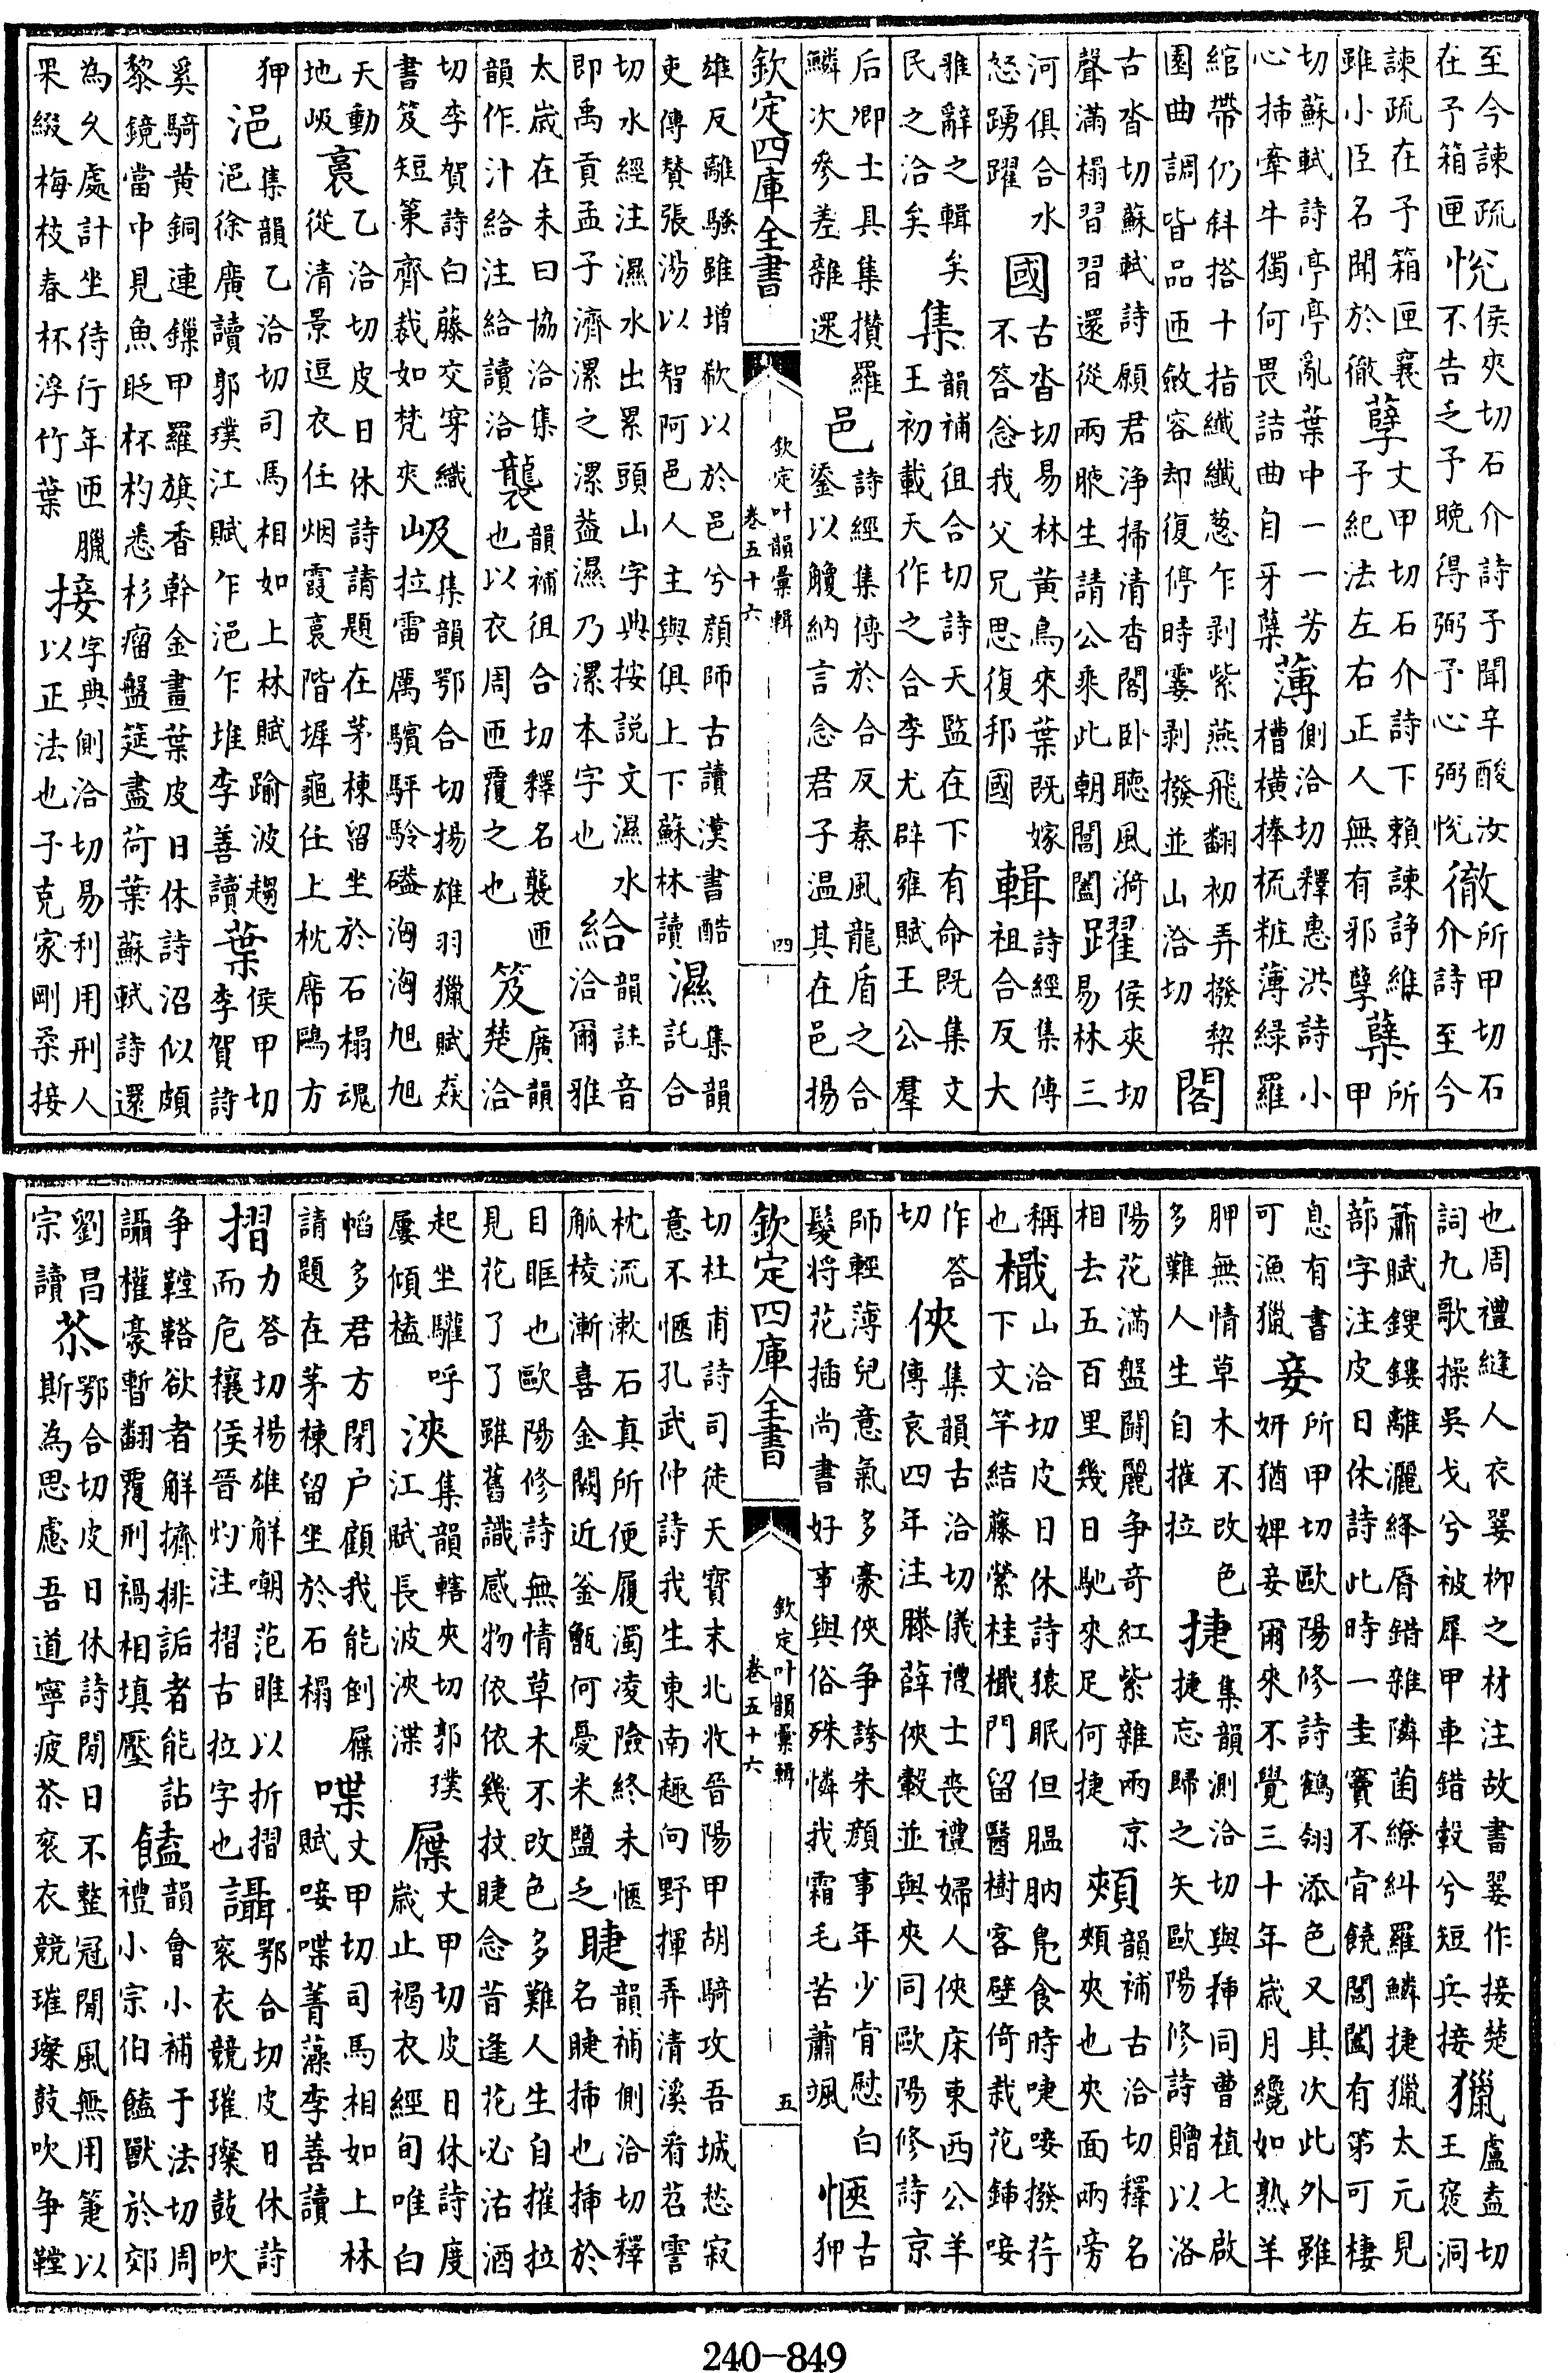 至今諫疏在予箱匣 悅 侯夾切石介詩予聞辛酸汝不告乏予晚得弼予心弼悅 徹 所甲切石介詩至今
諫疏在予箱匣襄雖小臣名聞於徹 孽 丈甲切石介詩下賴諫諍維予紀法左右正人無有邪孽 櫱 所甲
切蘇軾詩亭亭亂葉中一一芳心插牽牛獨何畏詰曲自牙櫱 薄 側洽切釋惠洪詩小槽橫捧梳粧薄緑羅
綰帶仍斜搭十指纖纖葱乍剥紫燕飛翻初弄撥棃園曲調皆品匝斂容却復停時霎剥撥並山洽切 閣
古沓切蘇軾詩願君浄掃清香閣卧聽風漪聲滿榻習習還從兩腋生請公乘此朝閶闔 躍 侯夾切易林三
河俱合水怒踴躍 國 古沓切易林黄鳥來葉既嫁不答念我父兄思復邦國 輯 詩經集傳祖合反大
雅辭之輯矣民之洽矣 集 韻補徂合切詩天監在下有命既集文王初載天作之合李尤辟雍賦王公羣
后卿士具集攢羅鱗次參差雜遝 邑 詩經集傳於合反秦風龍盾之合鋈以觼納言念君子温其在邑揚
欽定四庫全書 欽定叶韻彙輯 卷五十六 四
雄反離騷雖增欷以於邑兮顔師古讀漢書酷吏傳贊張湯以智阿邑人主與俱上下蘇林讀 濕 集韻託合
切水經注濕水出累頭山字典按説文濕水即禹貢孟子濟漯之漯葢濕乃漯本字也 給 韻註音洽爾雅
太歲在未曰協洽集韻作汁給注給讀洽 襲 韻補徂合切釋名襲匝也以衣周匝覆之也 笈 廣韻楚洽
切李賀詩白藤交穿織書笈短策齊裁如梵夾 岋 集韻鄂合切揚雄羽獵賦猋拉雷厲驞駍駖磕洶洶旭旭
天動地岋 裛 乙洽切皮日休詩請題在茅棟留坐於石榻魂從清景逗衣任烟霞裛階墀龜任上枕席鷗方
狎 浥 集韻乙洽切司馬相如上林賦踰波趨浥徐廣讀郭璞江賦乍浥乍堆李善讀 葉 侯甲切李賀詩
奚騎黄銅連鏁甲羅旗香幹金畫葉皮日休詩沼似頗黎鏡當中見魚眨杯杓悉杉瘤盤筵盡荷葉蘇軾詩還
為久處計坐待行年匝臘果綴梅枝春杯浮竹葉 接 字典側洽切易利用刑人以正法也子克家剛柔接
也周禮縫人衣翣柳之材注故書翣作接楚詞九歌操吳戈兮被犀甲車錯轂兮短兵接 獵 盧盍切王褒洞
簫賦鎪鏤離灑絳脣錯雜隣菌繚糾羅鱗捷獵太元見蔀字注皮日休詩此時一圭竇不肯饒閶闔有第可棲
息有書可漁獵 妾 所甲切歐陽修詩鶴翎添色又其次此外雖妍猶婢妾爾來不覺三十年歲月纔如熟羊
胛無情草木不改色多難人生自摧拉 捷 集韻測洽切與插同曹植七啟捷忘歸之矢歐陽修詩贈以洛
陽花滿盤鬬麗争奇紅紫雜兩京相去五百里幾日馳來足何捷 頰 韻補古洽切釋名頰夾也夾面兩旁
稱也 檝 山洽切皮日休詩猿眠但腽肭鳧食時啑唼撥荇下文竿結藤縈桂檝門留醫樹客壁倚栽花鍤唼
作答切 俠 集韻古洽切儀禮士喪禮婦人俠床東西公羊傳哀四年注滕薛俠轂並與夾同歐陽修詩京
師輕薄兒意氣多豪俠争誇朱顔事年少肯慰白髪將花插尚書好事與俗殊憐我霜毛苦蕭颯 愜 古狎
欽定四庫全書 欽定叶韻彙輯 卷五十六 五
切杜甫詩司徒天寶末北收晉陽甲胡騎攻吾城愁寂意不愜孔武仲詩我生東南趣向野揮弄清溪看苕霅
枕流漱石真所便履濁凌險終未愜觚棱漸喜金闕近釡甑何憂米鹽乏 睫 韻補側洽切釋名睫插也插於
目眶也歐陽修詩無情草木不改色多難人生自摧拉見花了了雖舊識感物依依幾抆睫念昔逢花必沽酒
起坐驩呼屢傾榼 浹 集韻轄夾切郭璞江賦長波浹渫 屧 丈甲切皮日休詩度歲止褐衣經旬唯白
㡌多君方閉户顧我能倒屧請題在茅棟留坐於石榻 喋 丈甲切司馬相如上林賦唼喋菁藻李善讀
摺 力答切楊雄解嘲范雎以折摺而危穰侯晉灼注摺古拉字也 讘 鄂合切皮日休詩衮衣競璀璨鼓吹
争鞺鞳欲者解擠排詬者能詀讘權豪暫翻覆刑禍相填壓 饁 韻會小補于法切周禮小宗伯饁獸於郊
劉昌宗讀 苶 鄂合切皮日休詩閒日不整冠閒風無用箑以斯為思慮吾道寧疲苶衮衣競璀璨鼓吹争鞺
240—849